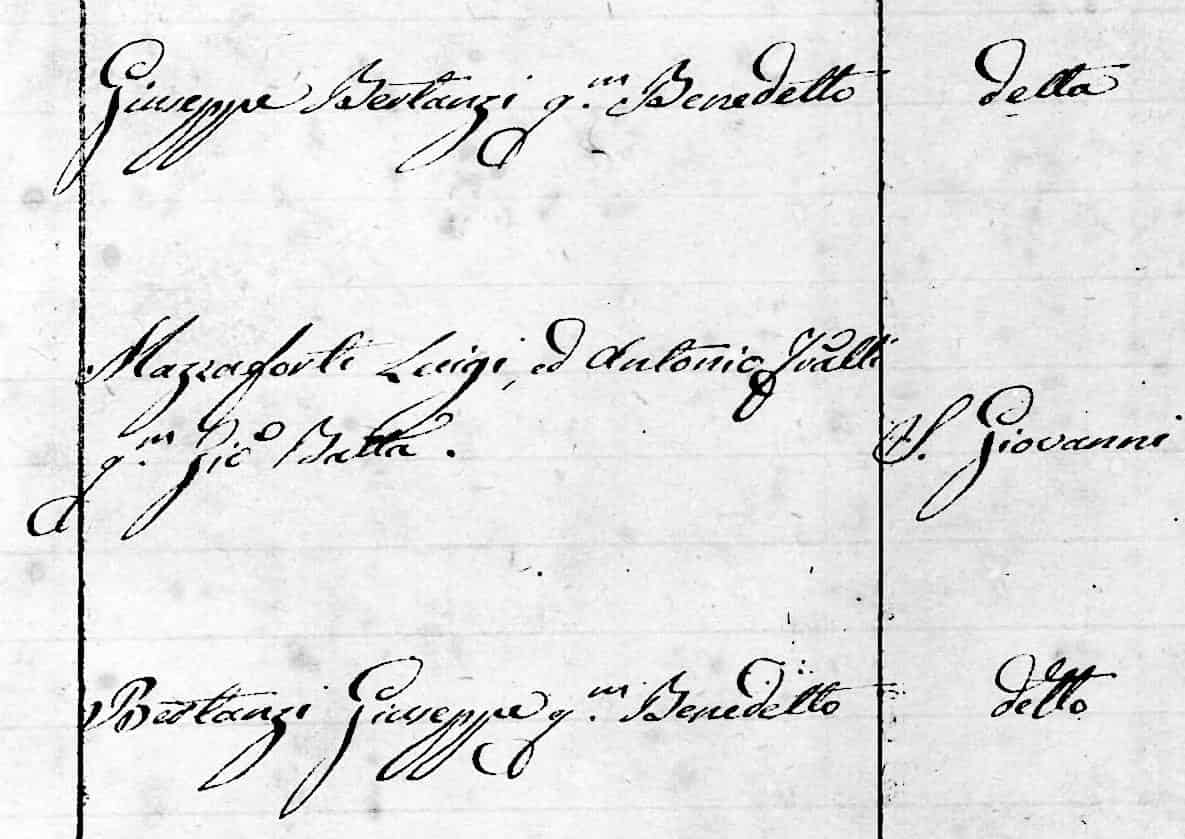 Giuseppe Bertanzi q.m Benedetto detta
Mazzaforti Luigi, ed Antonio Fralli
q.m Gio Batta.
S. Giovanni
Bertanzi Giuseppe q.m Benedetto detto